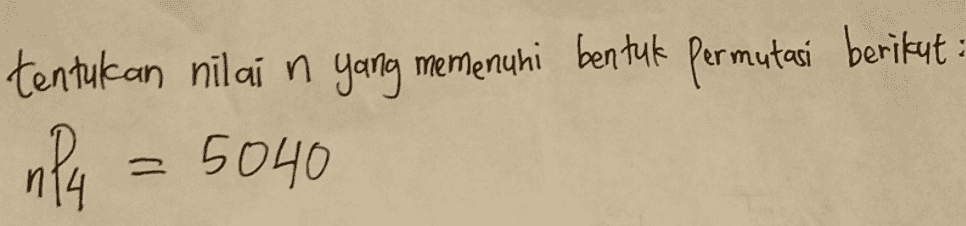 tentukan nilai n yang memenuhi bentuk permutasi berikut :
nP4 = 5040